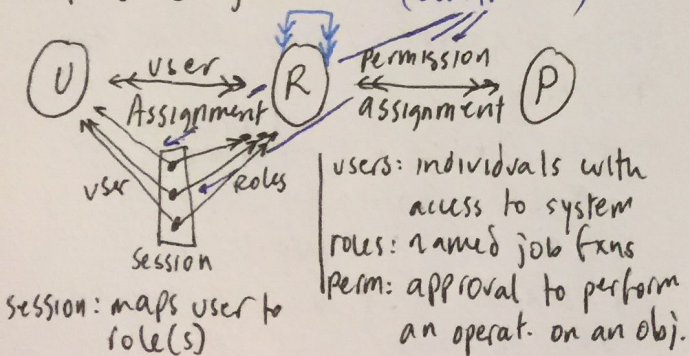 U
user
Assignment
R
permission
assignment
P
user
Roles
session
session: maps user to
role(s)
users: individvals with
access to system
roles: named job fxns
perm: approval to perform
an operat. on an obj.